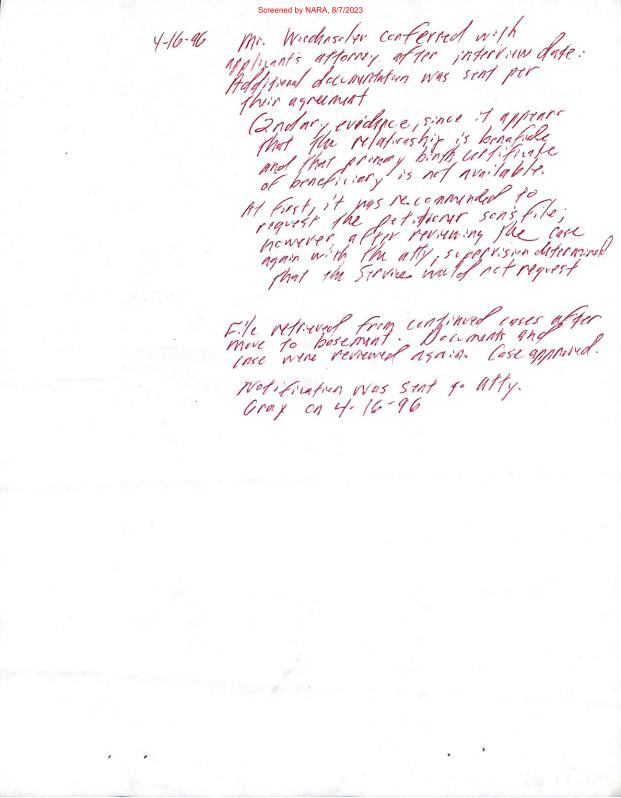 Screened by NARA, 8/7/2023
4-16-96 Mr. conferred with
applicant's attorney after interview date.
Additional documentation was sent per
their agreement
(2ndary evidence, since it appears
that the relationship is bonafide
and that primary birth certificate
of beneficiary is not available.
At first, it was recommended to
request the petitioner sons file;
however, after reviewing the case
again with the atty, supervision determined
that the Service would not request
File retrieved from continued cases after
move to basement. Documents and
case were reviewed again. Case approved.
Notification was sent to Atty.
Gray on 4-16-96